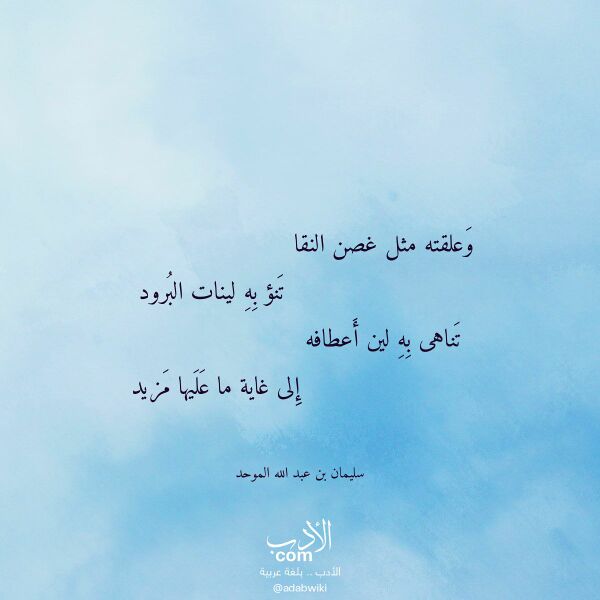 وَعلقته مثل غصن النقا
تَنؤ بِهِ لينات البُرود
تَناهى بِهِ لين أَعطافه
إِلى غاية ما عَلَيها مَزيد
سليمان بن عبد الله الموحد
الأدب
com
الأدب .. بلغة عربية
@adabwiki